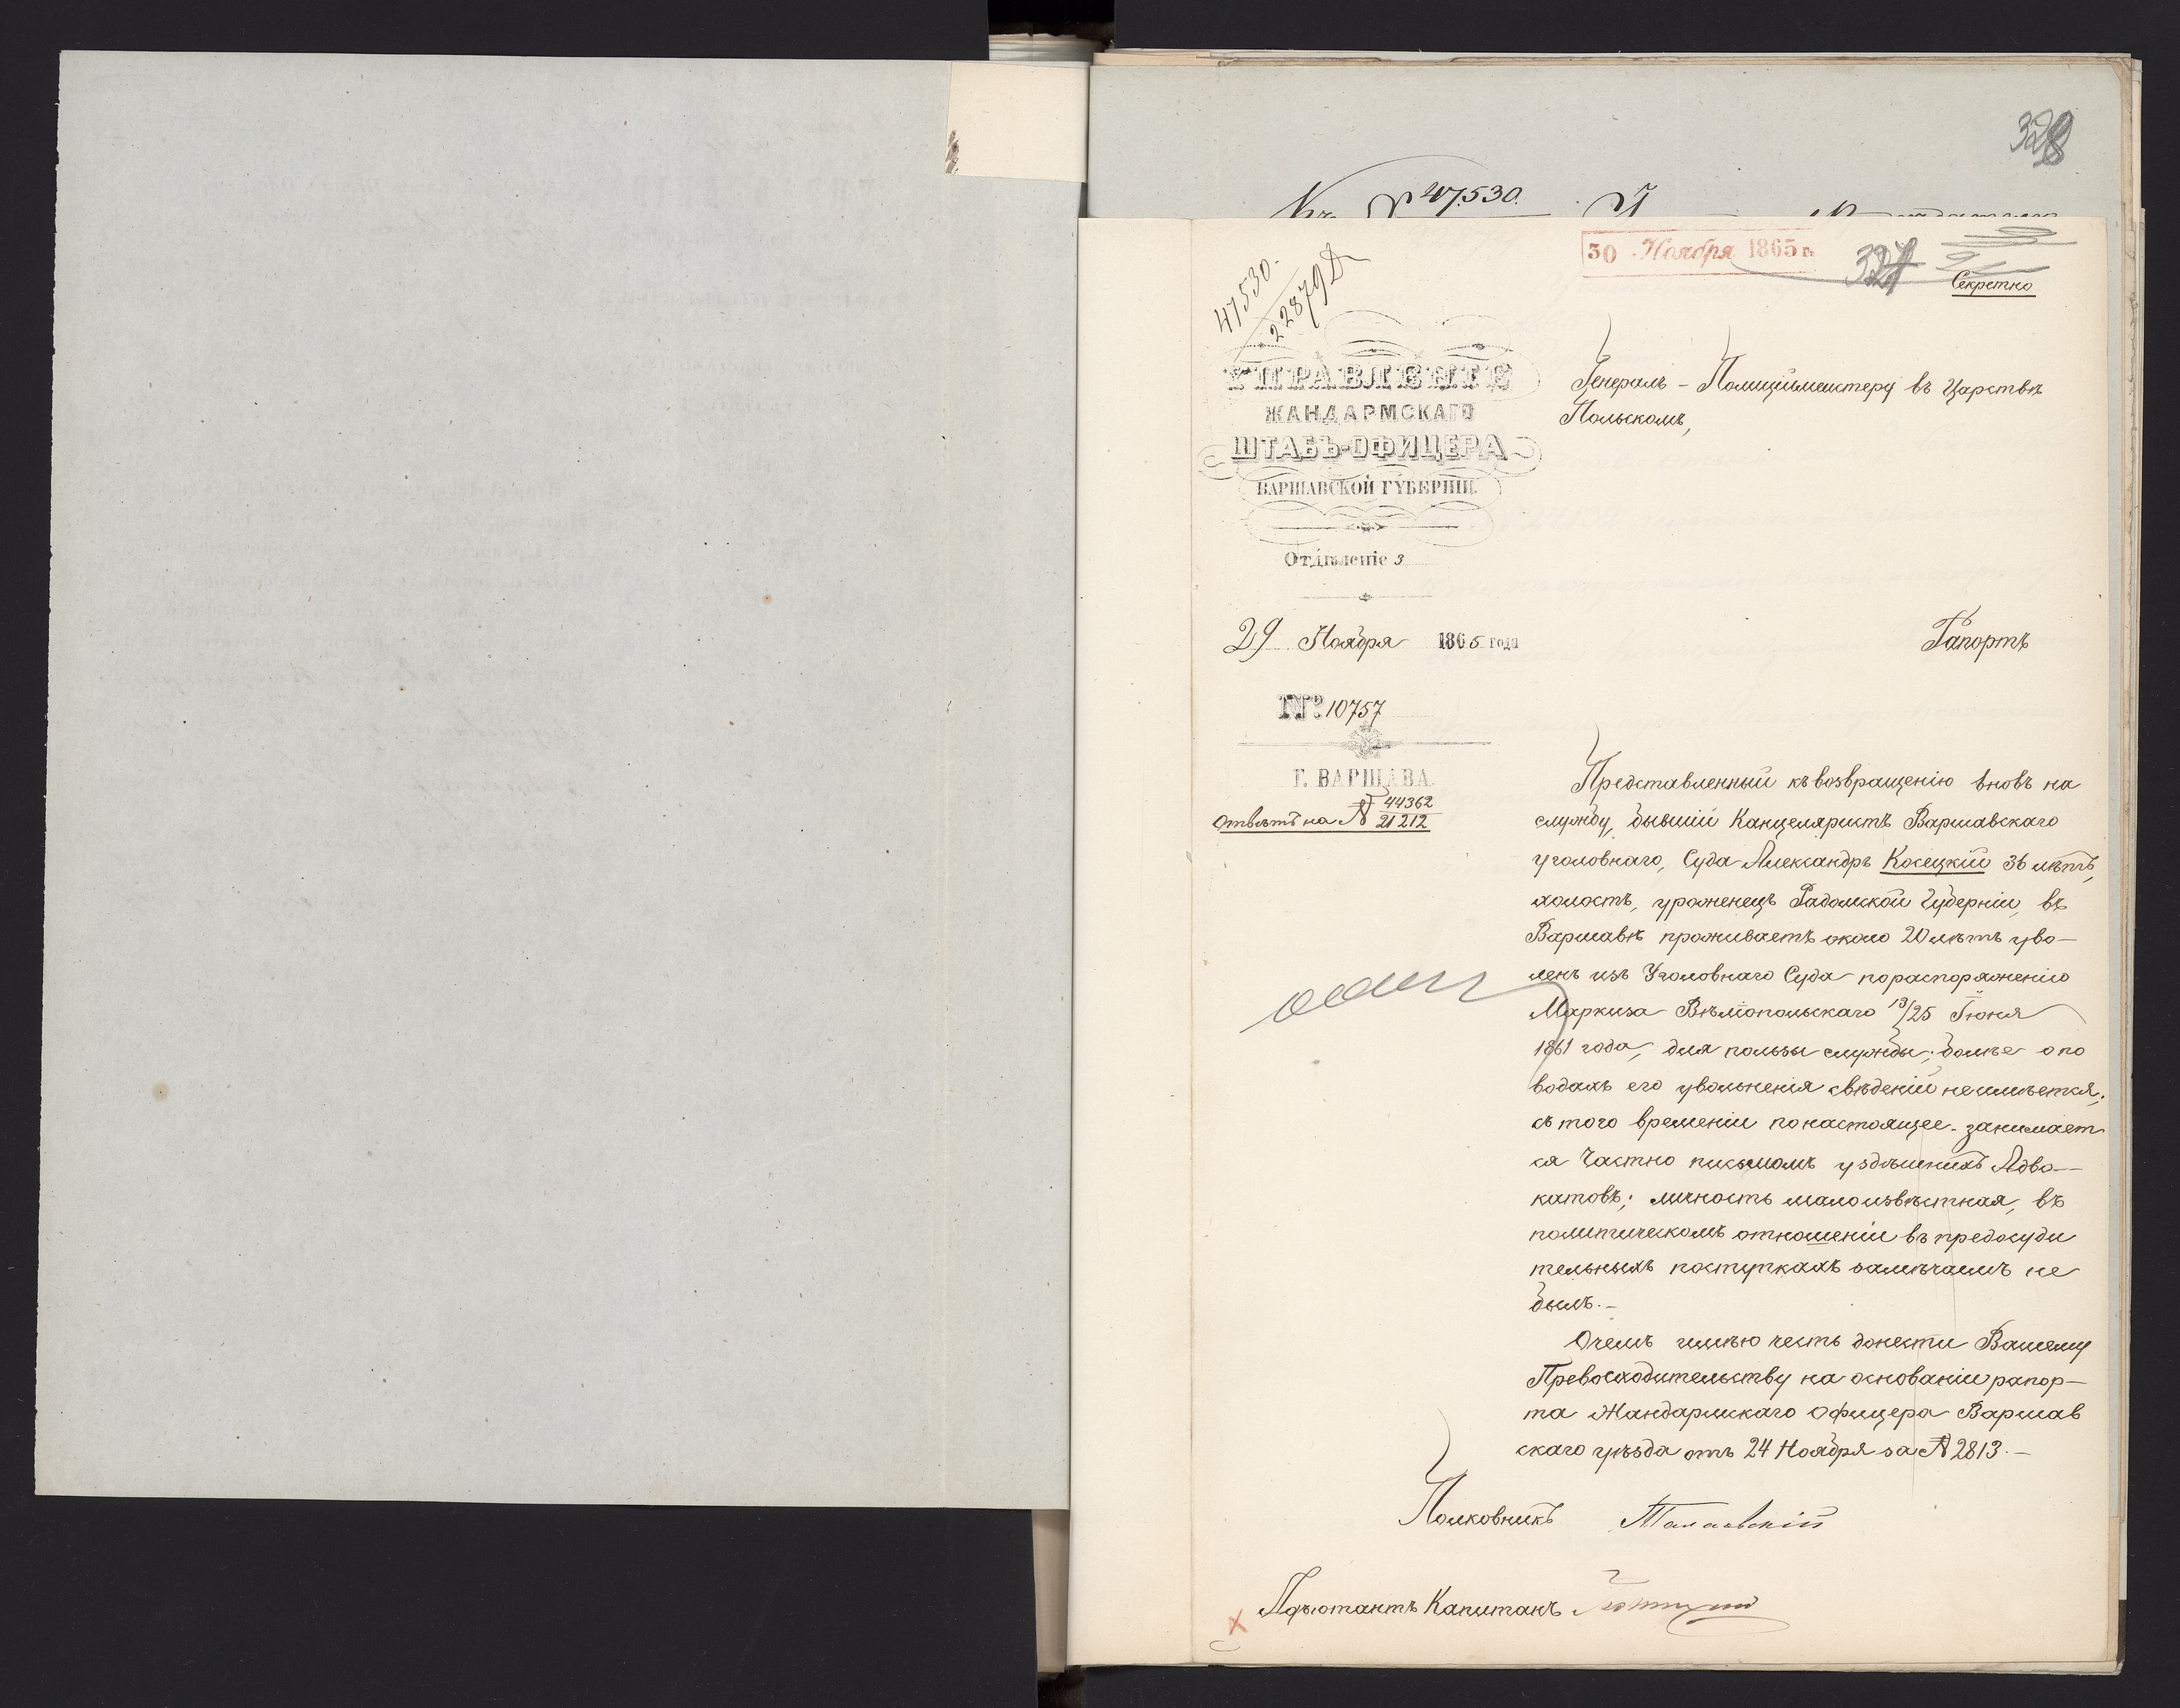 328
№ 47530.
30 Ноября 1865 г.
327
Секретно
47530.
22879
УПРАВЛЕНІЕ
ЖАНДАРМСКАГО
ШТАБЪ-ОФИЦЕРА
ВАРШАВСКОЙ ГУБЕРНІИ.
Отдѣленіе 3
29 Ноября 1865 года
№ 10757
Г. ВАРШАВА.
Отвѣтъ на № 44362
21212
Генералъ-Полицiймейстеру въ Царствѣ
Польскомъ,
Рапортъ
Представленный къ возвращенію вновь на
службу, бывшій Канцеляристъ Варшавскаго
уголовнаго, Суда Александръ Косецкій 36 лѣтъ,
холостъ, уроженецъ Радомской Губерніи, въ
Варшавѣ проживаетъ около 20 лѣтъ уво-
ленъ изъ Уголовнаго Суда по распоряженію
Маркиза Вѣлiопольскаго 13/25 Іюня
1861 года, для пользы службы; болѣе о по
водахъ его увольненія свѣденій неимѣется;
съ того времении по настоящее занимает
ся Частно письмомъ у здѣшнихъ Адво-
катовъ; личность малоизвѣстная, въ
политическомъ отношеніи въ предосуди
тельныхъ поступкахъ замѣчаемъ не
былъ.-
О чемъ имѣю честь донести Вашему
Превосходительству на основаніи рапор-
та Жандармскаго Офицера Варшав
скаго уѣзда отъ 24 Ноября за № 2813.-
Полковникъ
Адъютантъ Капитанъ